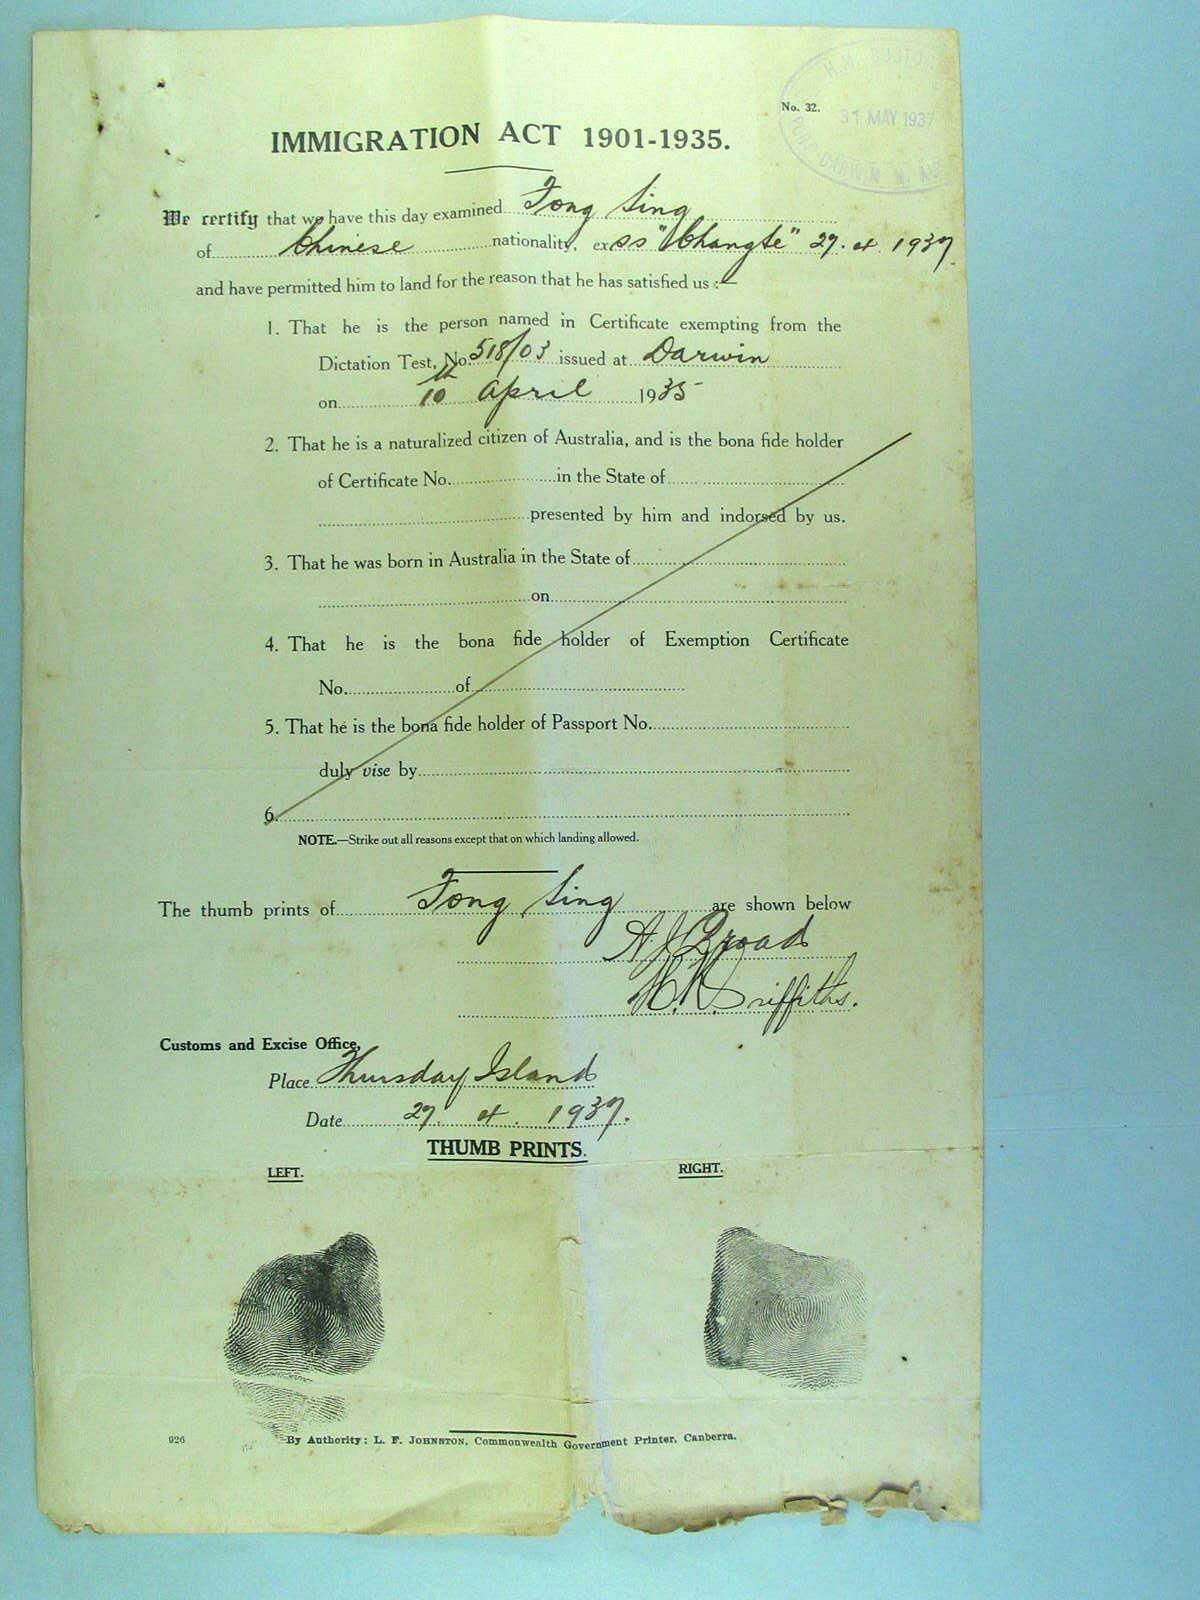 No. 32.
H.M. CUSTO
31 MAY 1937
DARWIN N. AUS
IMMIGRATION ACT 1901-1935.
We certify that we have this day examined Fong Sing
of Chinese nationality, ex SS "Changte" 27. 4. 1937.
and have permitted him to land for the reason that he has satisfied us :—
1. That he is the person named in Certificate exempting from the
Dictation Test, No. 518/03 issued at Darwin
on 10th April 1935
2. That he is a naturalized citizen of Australia, and is the bona fide holder
of Certificate No. in the State of
presented by him and indorsed by us.
3. That he was born in Australia in the State of
on
4. That he is the bona fide holder of Exemption Certificate
No. of
5. That he is the bona fide holder of Passport No.
duly vise by
6.
NOTE.—Strike out all reasons except that on which landing allowed.
The thumb prints of Fong Sing are shown below
A. J. Broad
H. K. Griffiths.
Customs and Excise Office,
Place Thursday Island
Date 27. 4. 1937.
THUMB PRINTS.
LEFT. RIGHT.
926 By Authority: L. F. JOHNSTON, Commonwealth Government Printer, Canberra.